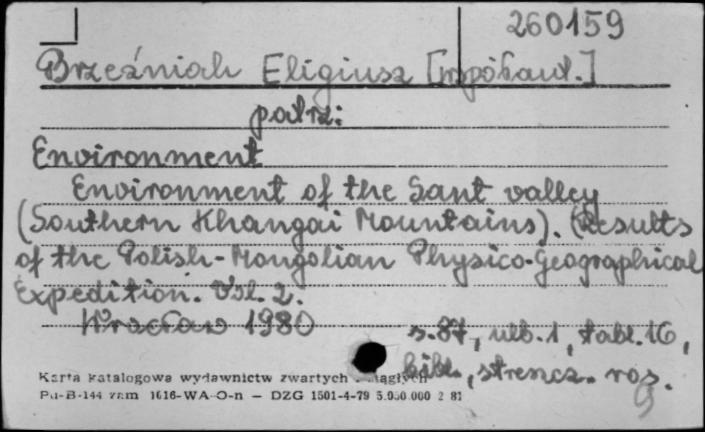 260159
Brzeźniak Eligiusz [współaut.]
patrz:
Environment
Environment of the Sant valley
(Southern Khangai Mountains). (Results
of the Polish-Mongolian Physico-Geographical
Expedition. Vol. 2.
Wrocław 1980
s. 87, nlb. 1, tabl. 16,
bibl., streszcz. ros.
Karta katalogowa wydawnictw zwartych i ciągłych
Pu-B-144 zam 1616-WA-O-n — DZG 1501-4-79 5.050.000 2 81